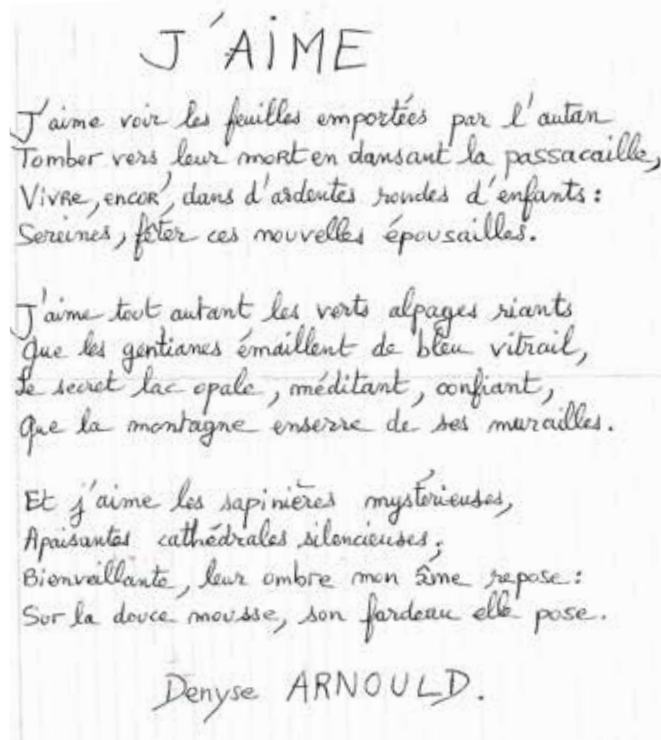 J'AIME
J'aime voir les feuilles emportées par l'autan
Tomber vers leur mort en dansant la passacaille,
Vivre, encor', dans d'ardentes rondes d'enfants :
Sereines, fêter ces nouvelles épousailles.
J'aime tout autant les verts alpages riants
Que les gentianes émaillent de bleu vitrail,
Le secret lac opale, méditant, confiant,
Que la montagne enserre de ses murailles.
Et j'aime les sapinières mystérieuses,
Apaisantes cathédrales silencieuses ;
Bienveillante, leur ombre mon âme repose :
Sur la douce mousse, son fardeau elle pose.
Denyse ARNOULD.